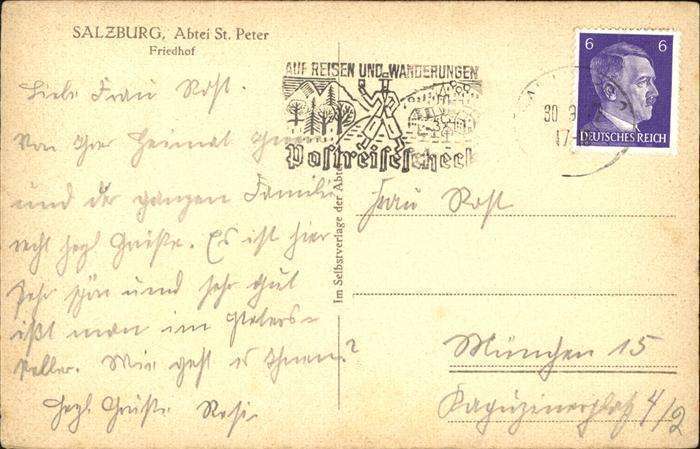 SALZBURG, Abtei St. Peter
Friedhof
Liebe Frau Rost.
Von Ihrer Heimat Ihnen
und der ganzen Familie
recht herzl Grüße. Es ist hier
sehr schön und sehr gut
ißt man im Peters-
keller. Wie geht es Ihnen?
Herzl Grüße Resi.
Im Selbstverlage der Abtei
AUF REISEN UND WANDERUNGEN
Postreisescheck
30 9
17-
6 6
DEUTSCHES REICH
Frau Rost
München 15
Kapuzinerplatz 4/2